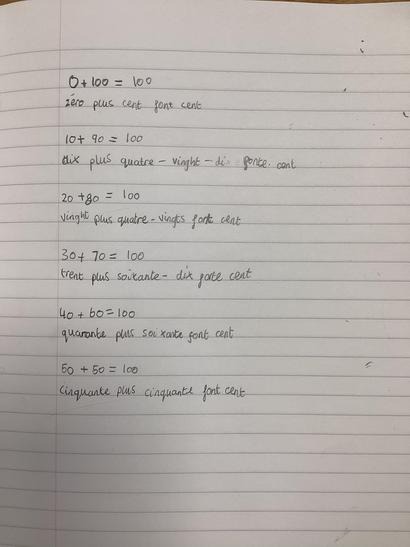 0 + 100 = 100
zéro plus cent font cent
10 + 90 = 100
dix plus quatre - vinght - dix fonte. cent
20 + 80 = 100
vinght plus quatre - vingts font cent
30 + 70 = 100
trent plus soixante - dix fonte cent
40 + 60 = 100
quarante plus soixante font cent
50 + 50 = 100
cinquante plus cinquante font cent